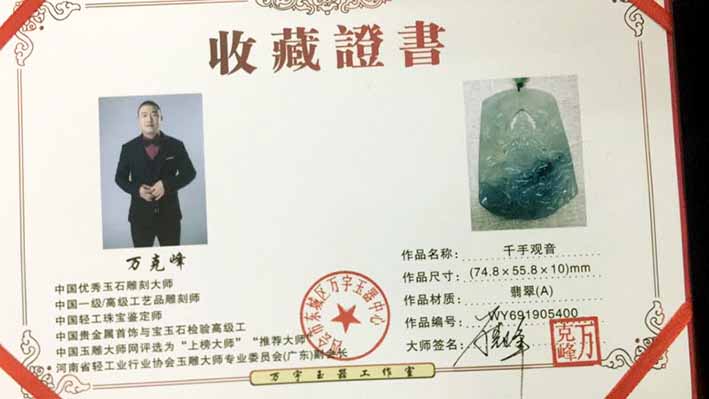 收藏證書
万克峰
中国优秀玉石雕刻大师
中国一级/高级工艺品雕刻师
中国轻工珠宝鉴定师
中国贵金属首饰与宝玉石检验高级工
中国玉雕大师网评选为“上榜大师” “推荐大师”
河南省轻工业行业协会玉雕大师专业委员会(广东)副会长
作品名称: 千手观音
作品尺寸: (74.8×55.8×10)mm
作品材质: 翡翠(A)
作品编号: WY691905400
大师签名:
万克峰
万宇玉器工作室